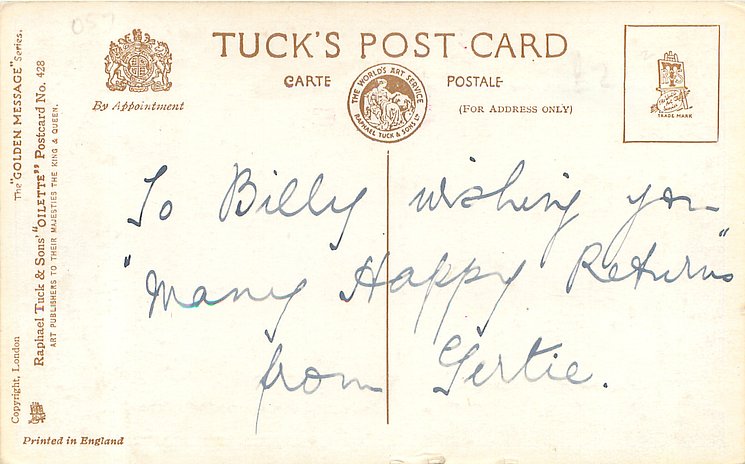 057
TUCK'S POST CARD
CARTE POSTALE
(FOR ADDRESS ONLY)
By Appointment
THE WORLD'S ART SERVICE
RAPHAEL TUCK & SONS LTD
TRADE MARK
To Billy wishing you
"Many Happy Returns"
from Gertie.
The "GOLDEN MESSAGE" Series.
Raphael Tuck & Sons' "OILETTE" Postcard No. 428
ART PUBLISHERS TO THEIR MAJESTIES THE KING & QUEEN.
Copyright, London
Printed in England